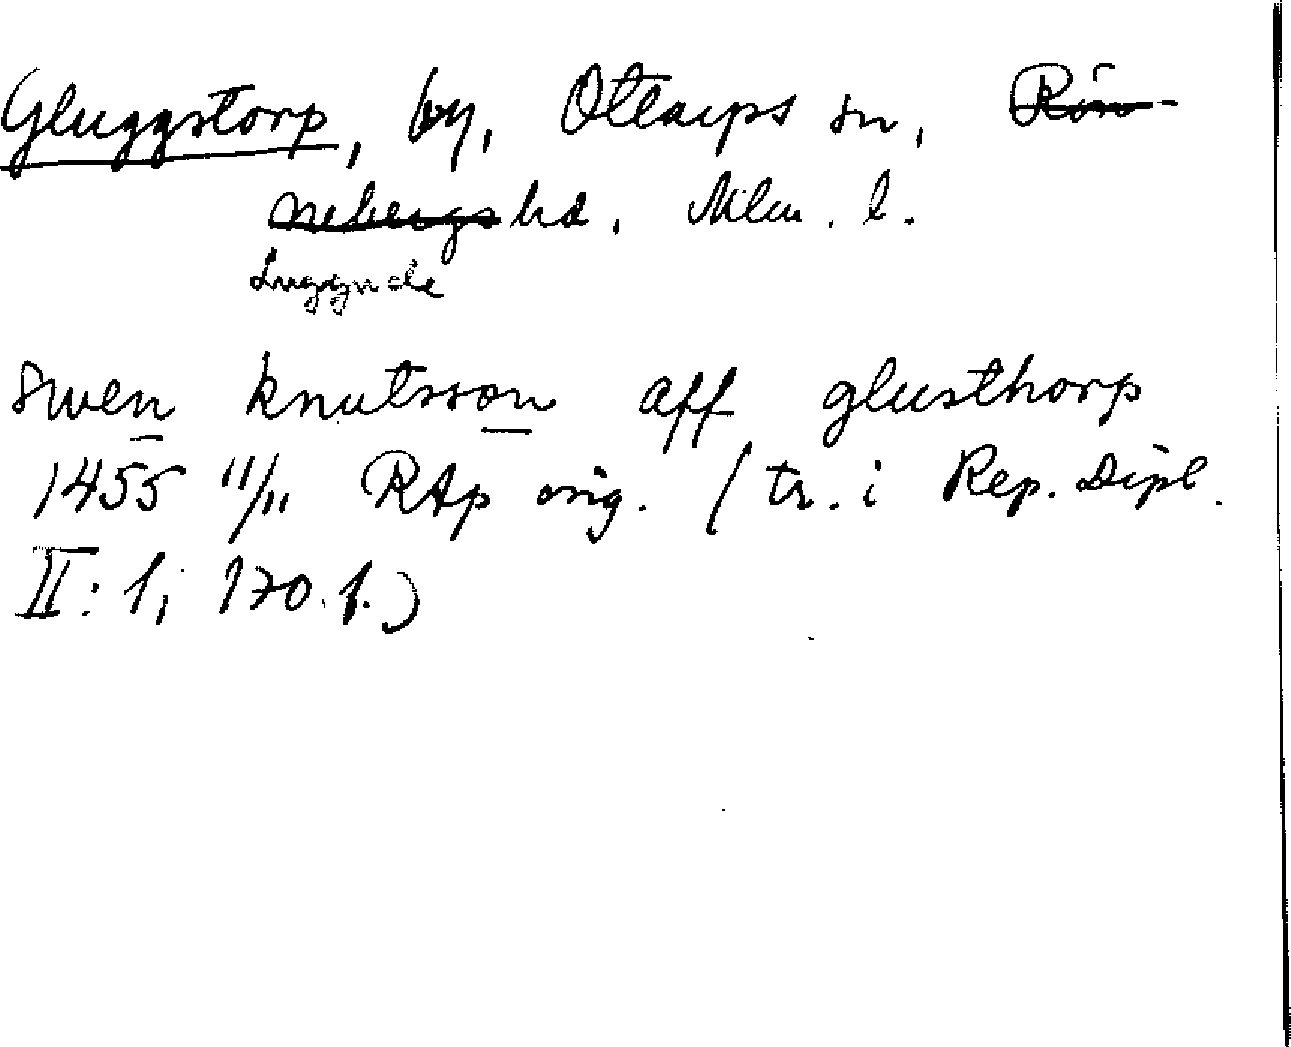 Gluggstorp, by, Ottarps sn, Rön-
nebergs hd. Mlm. l.
Luggude
Swen knutsson aff glusthorp
1455 11/11 RAp orig. (tr. i Rep. Dipl.
II: 1, 170. f.)